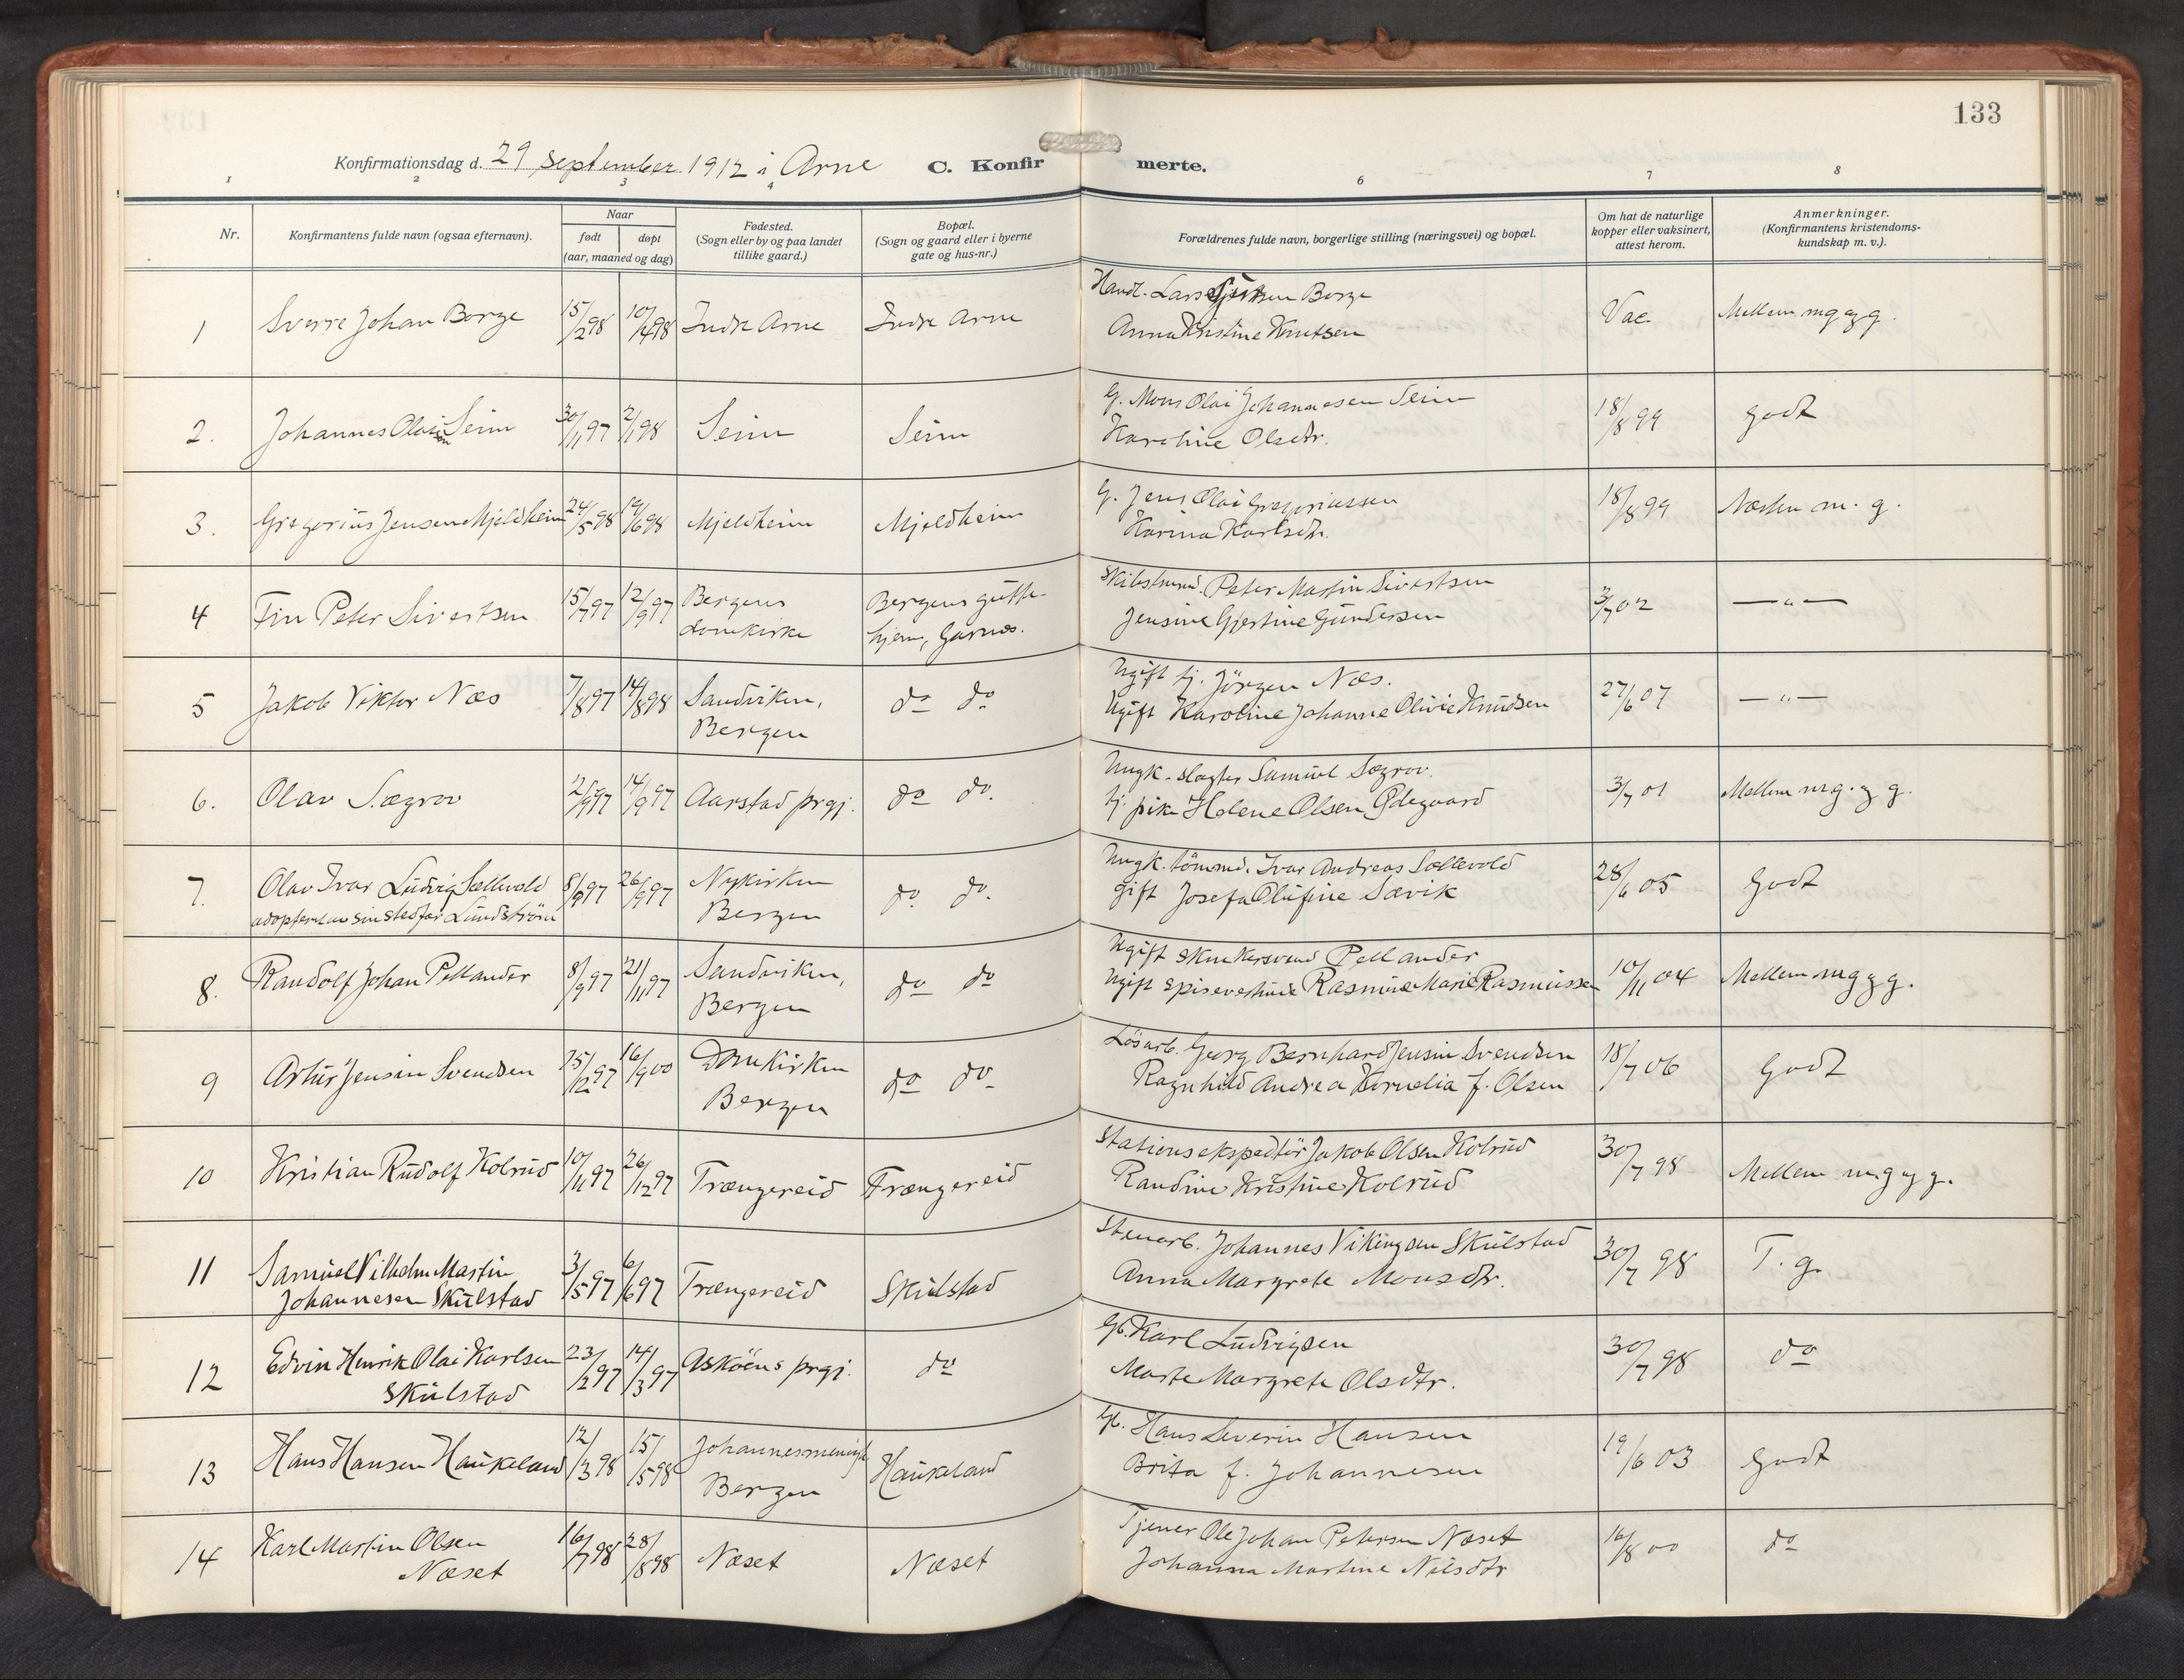 133
Konfirmationsdag d. 29 september 1912 i Arne C. Konfirmerte.
1 2 3 4 6 7 8
Nr. Konfirmantens fulde navn (ogsaa efternavn). Naar født døpt (aar, maaned og dag) Fødested. (Sogn eller by og paa landet tillike gaard.) Bopæl. (Sogn og gaard eller i byerne gate og hus-nr.) Forældrenes fulde navn, borgerlige stilling (næringsvei) og bopæl. Om hat de naturlige kopper eller vaksinert, attest herom. Anmerkninger. (Konfirmantens kristendoms-kundskap m. v.).
1 Sverre Johan Borge 15/2 98 10/4 98 Indre Arne Indre Arne Handl. Lars Borge
Anna Kristine Knutsen Vac. Mellem mg og g.
2. Johannes Olai Seim 30/11 97 2/1 98 Seim Seim G. Mons Olai Johannesen Seim
Karoline Olsdtr. 18/8 99 Godt
3. Gregorius Jensen Mjeldheim 24/5 98 19/6 98 Mjeldheim Mjeldheim G. Jens Olai Gregoriussen
Karina Karlsdtr. 18/8 99 Næsten m. g.
4 Fin Peter Sivertsen 15/7 97 12/9 97 Bergens domkirke Bergens gutte-hjem, Garnes. Skibstmnd. Peter Martin Sivertsen
Jensine Gjertine Gundersen 3/7 02 —"—
5 Jakob Viktor Næs 7/8 97 14/8 98 Sandviken, Bergen do do Ugift tj. Jörgen Næs.
Ugift Karoline Johanne Olivie Knudsen 27/6 07 —"—
6. Olav Sægrov 2/9 97 14/9 97 Aarstad prgj. do do. Ungk. slagter Samuel Sægrov.
tj. pike Helene Olsen Ødegaard 3/7 01 Mellem mg. og g.
7. Olav Ivar Ludvig Sællevold
adoptert av sin stedfar Lundström 8/9 97 26/9 97 Nykirken Bergen do do. Ungk. tömmd. Ivar Andreas Sællevold
gift Josefa Olufine Sævik 28/6 05 Godt
8. Randolf Johan Pellander 8/9 97 21/11 97 Sandviken, Bergen do do Ugift Pellander
Ugift spisevertinde Rasmine Marie Rasmussen 10/11 04 Mellem mg og g.
9 Artur Jensin Svendsen 15/12 97 16/9 00 Domkirken Bergen do do Lösarb. Georg Bernhard Jensin Svendsen
Ragnhild Andrea Kornelia f. Olsen 18/7 06 Godt
10 Kristian Rudolf Kolrud 10/11 97 26/12 97 Trængereid Trængereid Stationsekspeditör Jakob Olsen Kolrud
Randine Kristine Kolrud 30/7 98 Mellem m.g og g.
11 Samuel Vilhelm Martin
Johannesen Skulstad 3/5 97 6/6 97 Trængereid Skulstad Stenarb. Johannes Vikingsen Skulstad
Anna Margrete Monsdtr. 30/7 98 T. g.
12 Edvin Henrik Olai Karlsen
Skulstad 23/2 97 14/3 97 Asköens prgj. do Gb. Karl Ludvigsen
Marte Margrete Olsdtr. 30/7 98 do
13 Hans Hansen Haukeland 12/3 98 15/5 98 Johannesmenigh Bergen Haukeland Gb. Hans Severin Hansen
Brita f. Johannesen 19/6 03 Godt
14 Karl Martin Olsen
Næset 16/7 98 28/8 98 Næset Næset Tjener Ole Johan Petersen Næset
Johanna Martine Nilsdtr 16/8 00 do